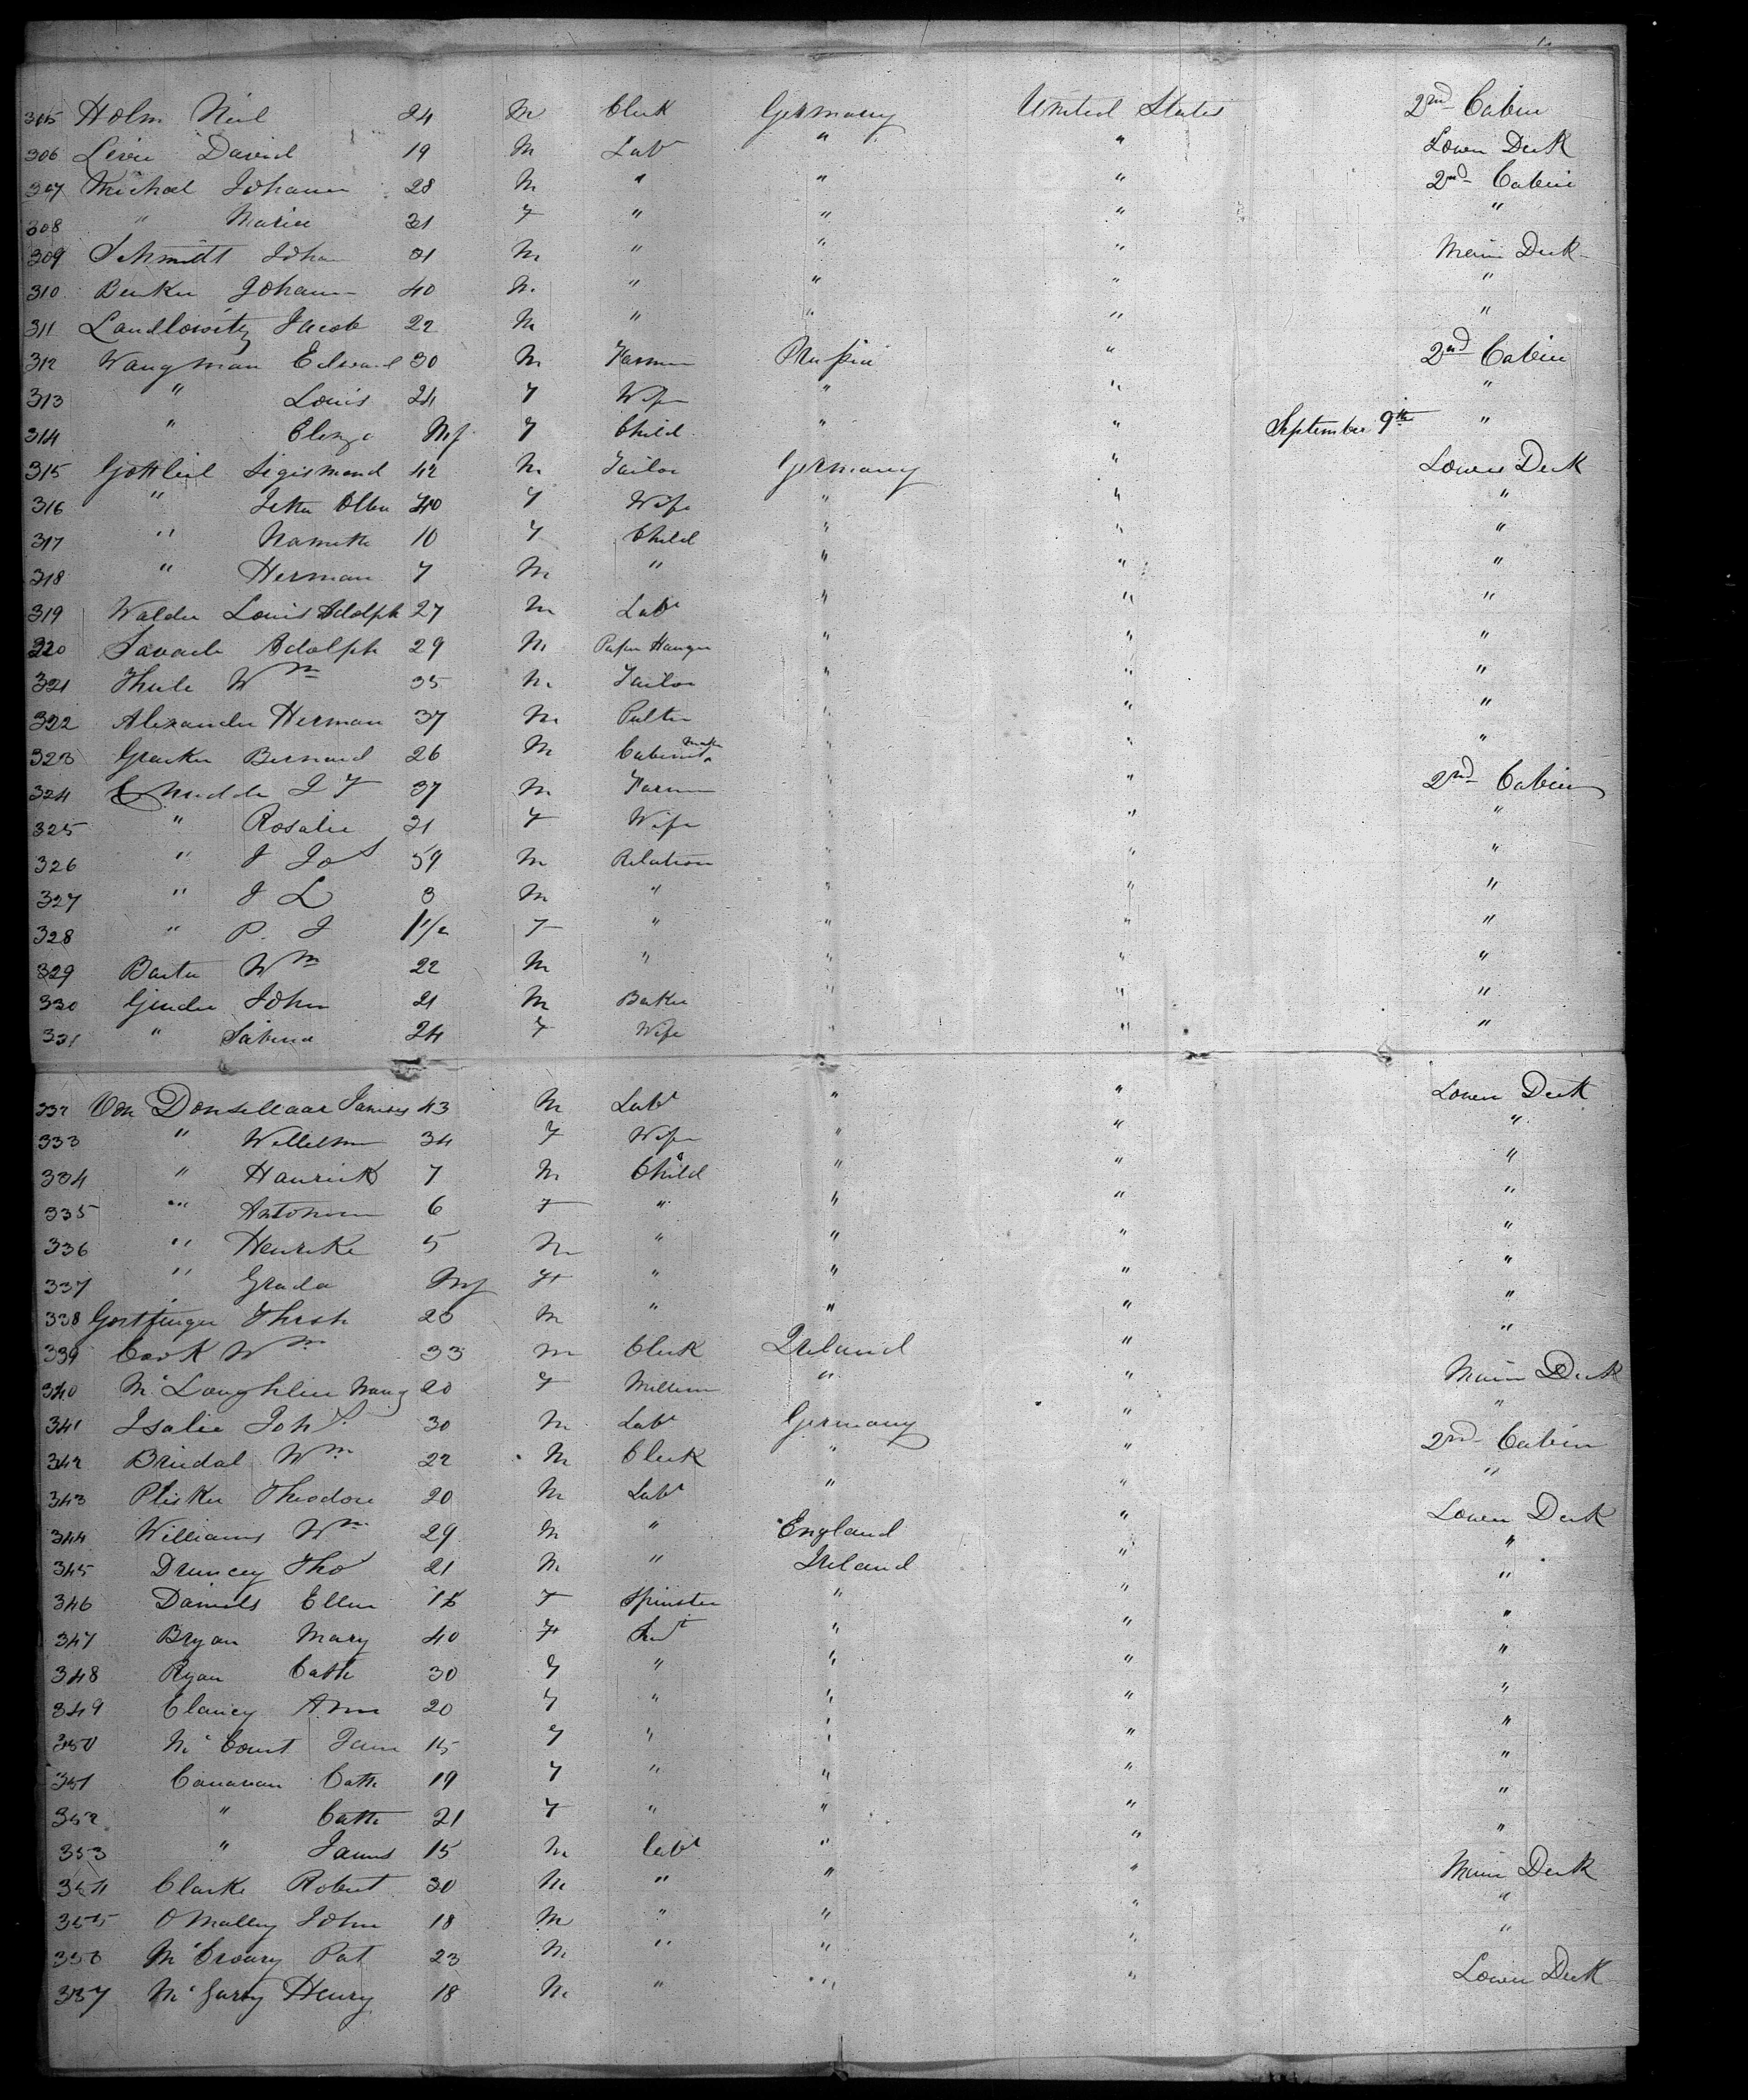 305 Holm Neil 24 M Clerk Germany United States 2nd Cabin
306 Levi David 19 M Labr " " Lower Deck
307 Michael Johann 28 M " " " 2nd Cabin
308 " Maria 31 F " " " "
309 Schmitt Johan 31 M " " " Main Deck
310 Johann 40 M " " " "
311 Landlowitz Jacob 22 M " " " "
312 Waugman Edward 30 M Farmer Prussia " 2nd Cabin
313 " Louis 24 F Wife " " "
314 " Inf F Child " " September 9th "
315 Gottleil Sigismond 42 M Tailor Germany " Lower Deck
316 " 40 F Wife " " "
317 " Nannette 10 F Child " " "
318 " Herman 7 M " " " "
319 Walder Louis Adolph 27 M Labr " " "
320 Adolph 29 M Paper Hanger " " "
321 Thule Wm 35 M Tailor " " "
322 Alexander Herman 37 M " " "
323 Bernard 26 M Cabinet Maker " " "
324 J F 37 M Farmer " " 2nd Cabin
325 " Rosalie 31 F Wife " " "
326 " J Jos 59 M Relation " " "
327 " J L 3 M " " " "
328 " P. J 1 1/2 F " " " "
329 Wm 22 M " " " "
330 Ginder John 21 M Baker " " "
331 " Sabina 24 F Wife " " "
332 Von Donsellaar James 43 M Labr " " Lower Deck
333 " 34 F Wife " " "
334 " Hanrick 7 M Child " " "
335 " 6 F " " " "
336 " Henrike 5 M " " " "
337 " Grada Inf F " " " "
338 M " " " "
339 Cark Wm 33 M Clerk Ireland " "
340 McLaughlin 20 F " " Main Deck
341 Isalie Joh 30 M Labr Germany " "
342 Briedal Wm 22 M Clerk " " 2nd Cabin
343 Plisker Theodore 20 M Labr " " "
344 Williams Wm 29 M " England " Lower Deck
345 Druncey Tho 21 M " Ireland " "
346 Daniels Ellen F Spinster " " "
347 Bryan Mary 40 F Servt " " "
348 Ryan Cath 30 F " " " "
349 Clancy Ann 20 F " " " "
350 McCourt Jane 15 F " " " "
351 Canavan Cath 19 F " " " "
352 " Cath 21 F " " " "
353 " James 15 M Labr " " "
354 Clarke Robert 30 M " " " Main Deck
355 O Malley John 18 M " " " "
356 McCroary Pat 23 M " " " "
357 McGarry Henry 18 M " " " Lower Deck